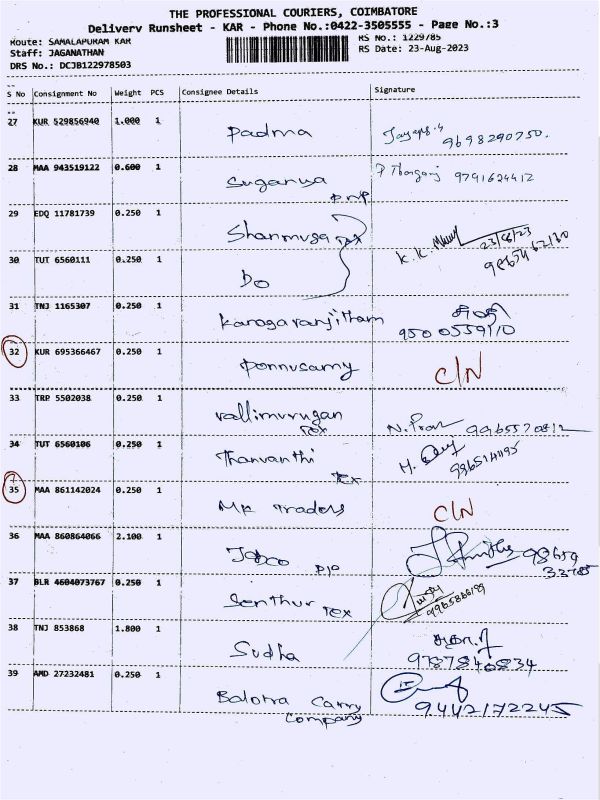 THE PROFESSIONAL COURIERS, COIMBATORE
Delivery Runsheet - KAR - Phone No.:0422-3505555 - Page No.:3
Route: SAMALAPURAM KAR
RS No.: 1229785
Staff: JAGANATHAN
RS Date: 23-Aug-2023
DRS No.: DCJB122978503
S No Consignment No Weight PCS Consignee Details Signature
27 KUR 529856940 1.000 1 Padma 9698290750.
28 MAA 943519122 0.600 1 Suganya 9791624412
29 EDQ 11781739 0.250 1 Shanmuga Tex
30 TUT 6560111 0.250 1 Do
31 TNJ 1165307 0.250 1 Kanagaranjitham
32 KUR 695366467 0.250 1 Ponnusamy C/N
33 TRP 5502038 0.250 1 Vallimurugan Tex
34 TUT 6560106 0.250 1 Thanvanthi Tex
35 MAA 861142024 0.250 1 MK Traders C/N
36 MAA 860864066 2.100 1
37 BLR 4604073767 0.250 1 Senthur Tex
38 TNJ 853868 1.800 1 Sudha 9787840834
39 AMD 27232481 0.250 1 Balotra Carry 9442172245
Company